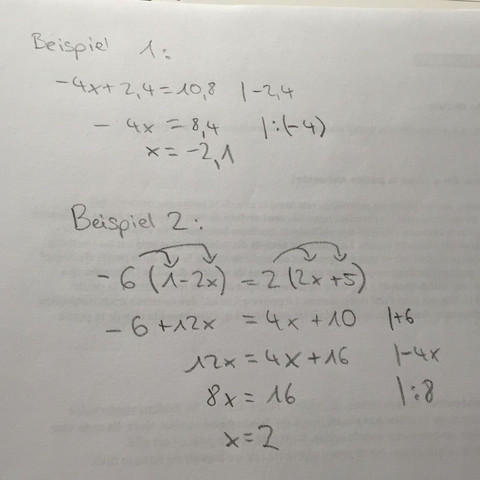 Beispiel 1:
-4x+2,4=10,8 |-2,4
- 4x = 8,4 |:(-4)
x=-2,1
Beispiel 2:
-6(1-2x) = 2(2x+5)
-6+12x = 4x+10 |+6
12x=4x+16 |-4x
8x=16 |:8
x=2